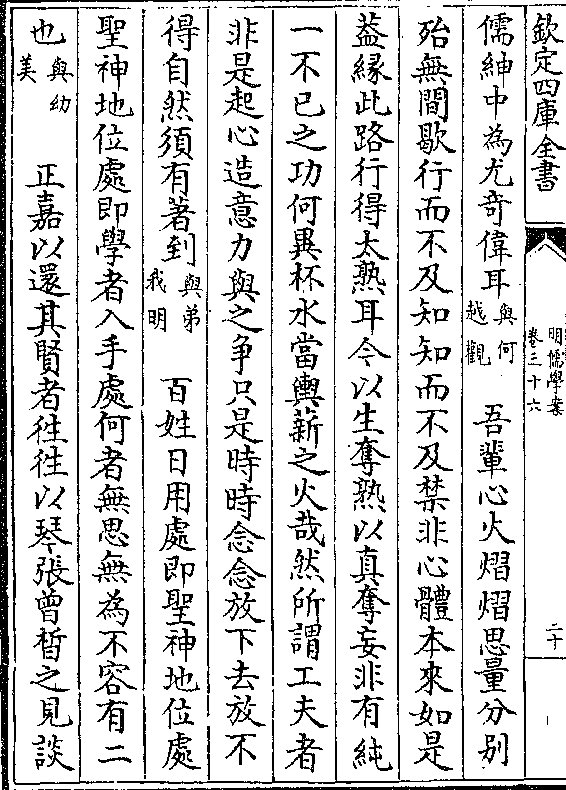 欽定四庫全書
明儒學案
卷三十六
二十
儒紳中為尤奇偉耳與何越觀 吾輩心火熠熠思量分别
殆無間歇行而不及知知而不及禁非心體本來如是
葢緣此路行得太熟耳今以生奪熟以真奪妄非有純
一不已之功何異杯水當輿薪之火哉然所謂工夫者
非是起心造意力與之争只是時時念念放下去放不
得自然須有著到與弟我明 百姓日用處即聖神地位處
聖神地位處即學者入手處何者無思無為不容有二
也與幼美 正嘉以還其賢者往往以琴張曾晳之見談